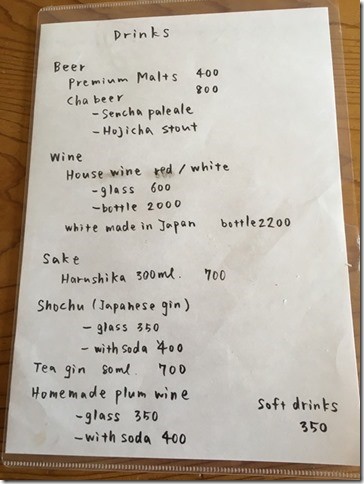 Drinks
Beer
Premium Malts 400
Cha beer 800
- Sencha paleale
- Hojicha stout
Wine
House wine red / white
- glass 600
- bottle 2000
white made in Japan bottle 2200
Sake
Harushika 300ml. 700
Shochu (Japanese gin)
- glass 350
- with soda 400
Tea gin 80ml. 700
Homemade plum wine
- glass 350
- with soda 400
Soft drinks
350